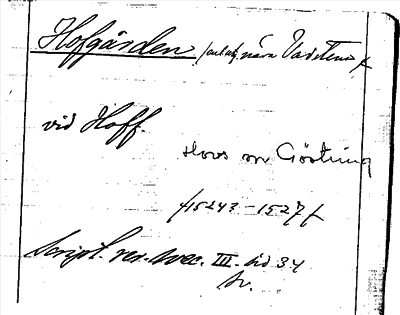 Hofgården nära Vadstena
vid Hoff.
Hovs sn Göstring
1524 - 1527
Script. rer. svec. III. sid 34